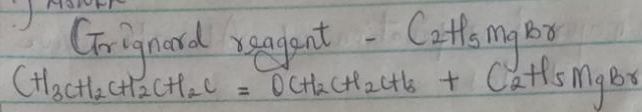 ) ANSWER
Grignard reagent - C2H5MgBr
CH3CH2CH2CH2C = OCH2CH2CH3 + C2H5MgBr